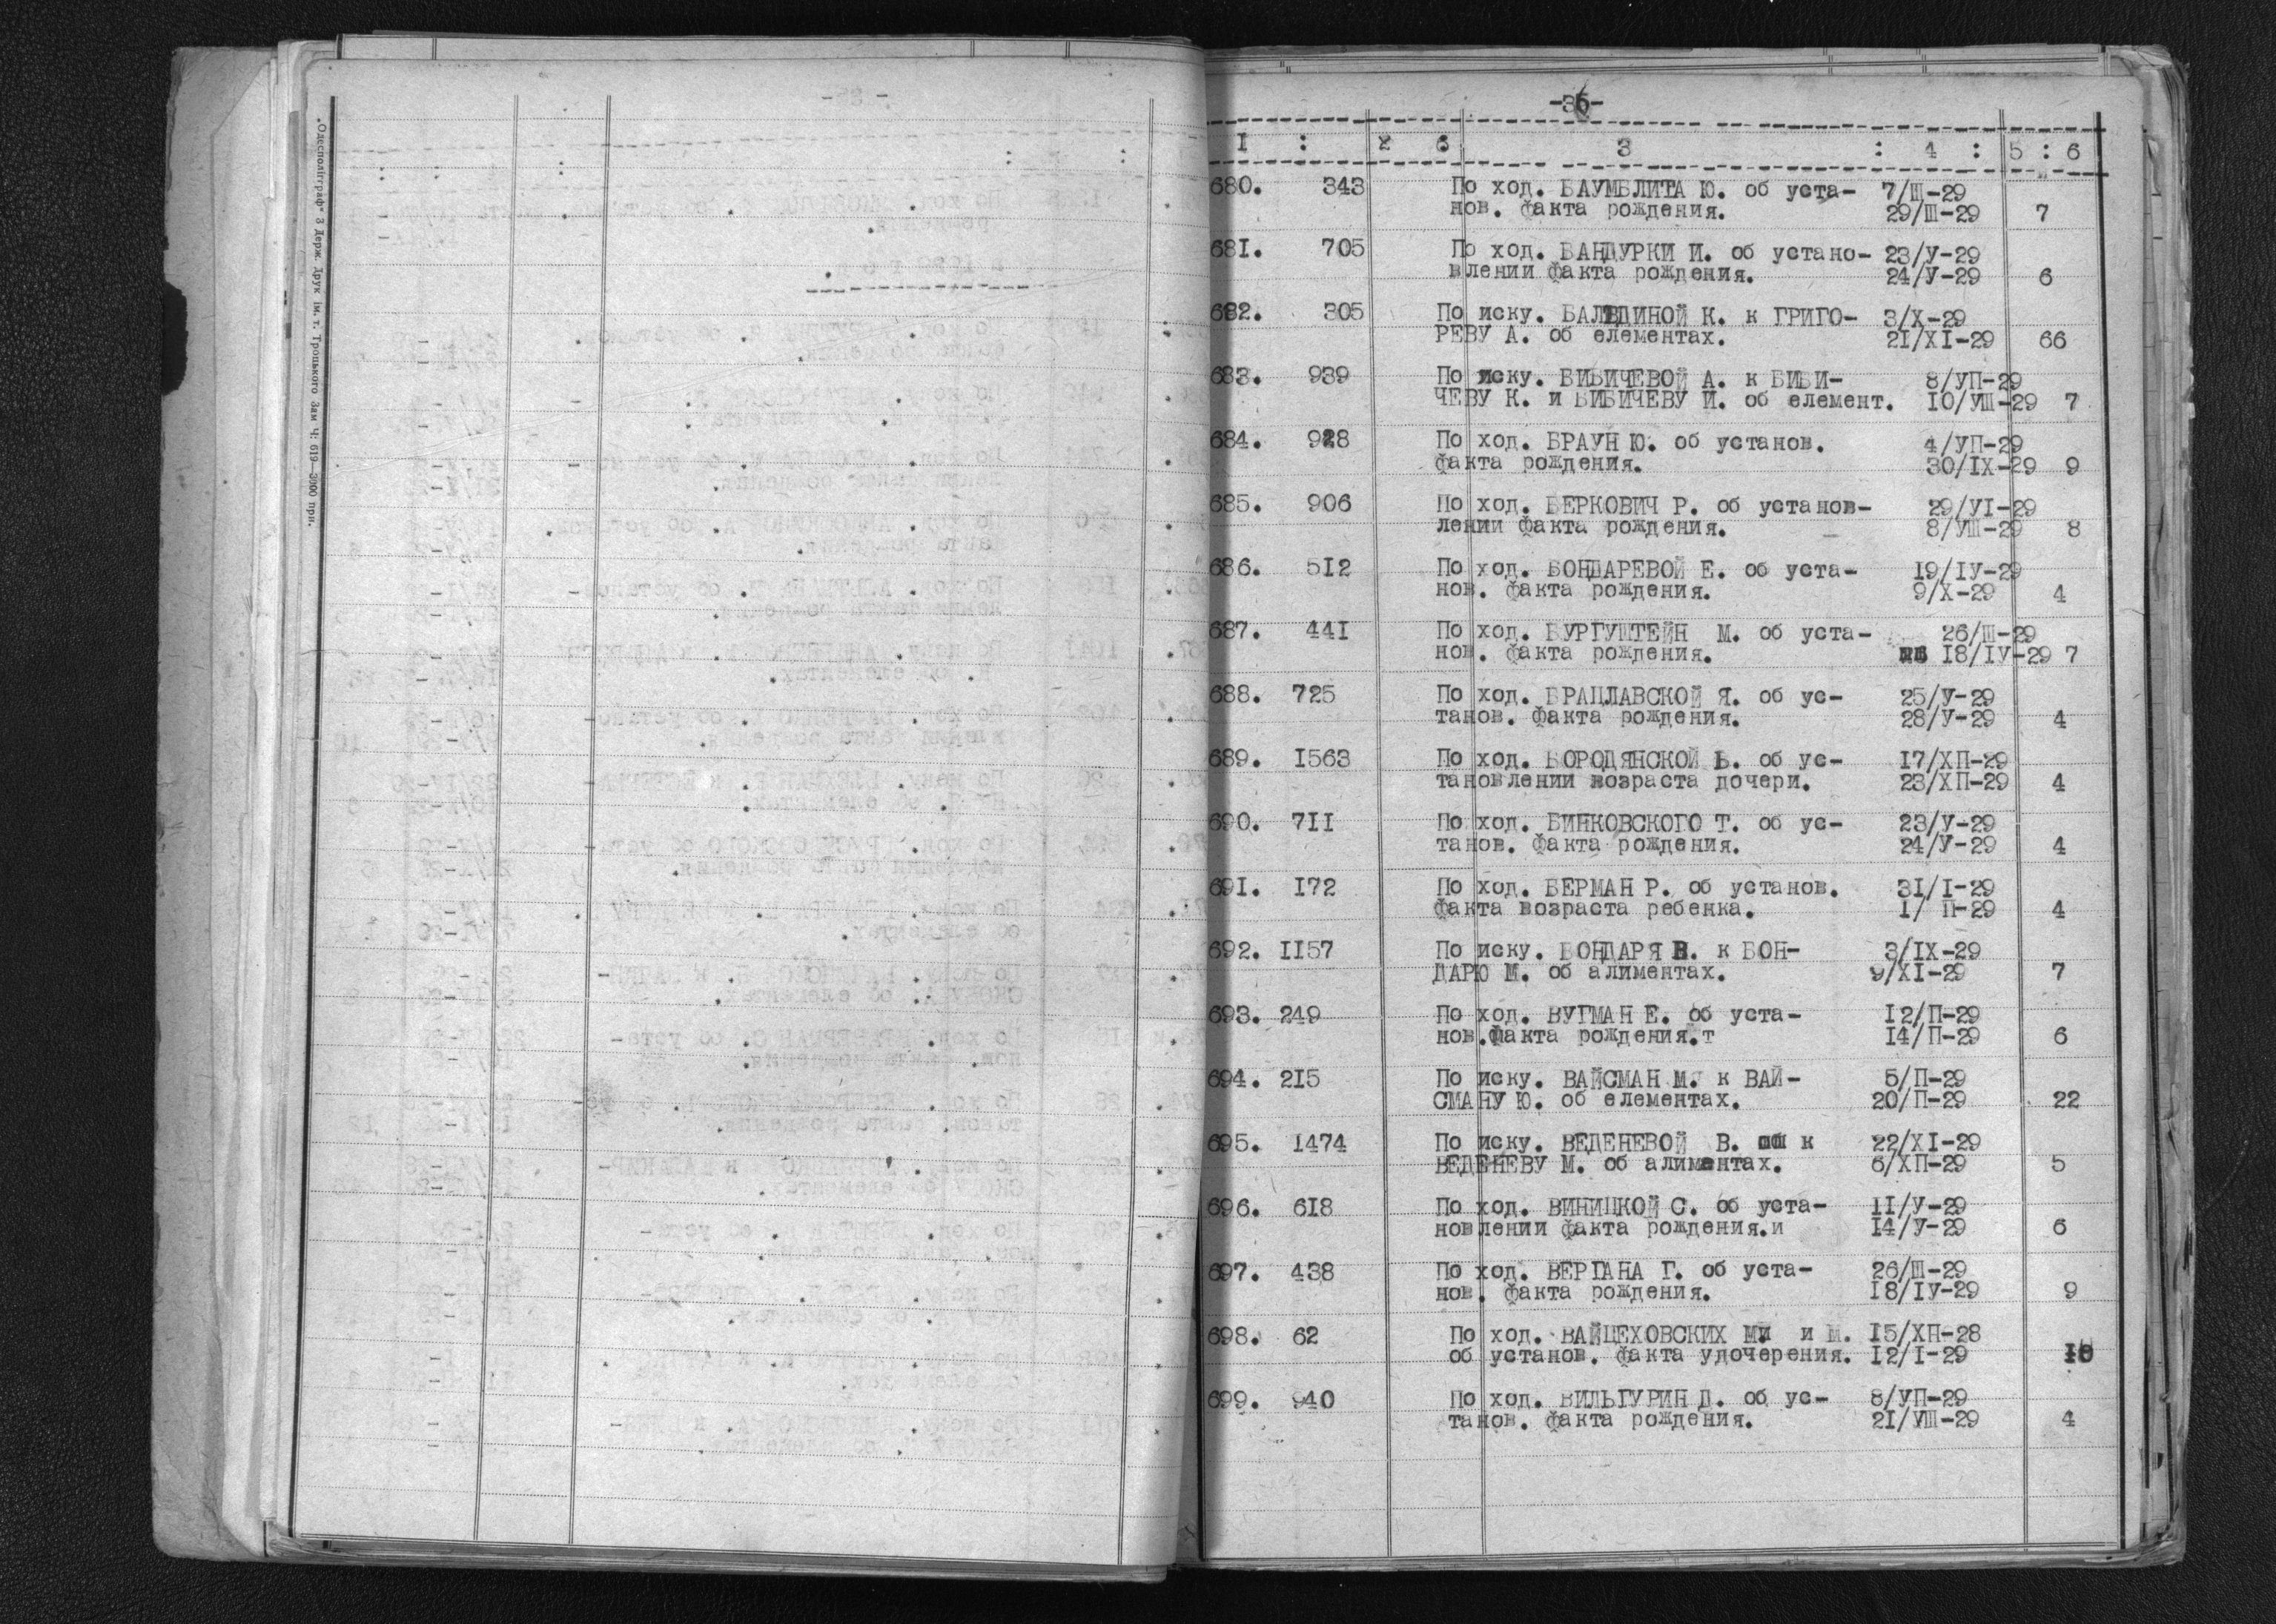 "Одесполіграф" 3 Держ. Друк ім. т. Троцького Зам Ч: 619—3000 прим.
-36-
1 : 2 : 3 : 4 : 5 : 6
680. 343 По ход. БАУМБЛИТА Ю. об уста- 7/Ш-29
нов. факта рождения. 29/Ш-29 7
681. 705 По ход. БАНДУРКИ И. об устано- 23/У-29
влении факта рождения. 24/У-29 6
682. 305 По иску. К. к ГРИГО- 3/Х-29
РЕВУ А. об елементах. 21/XI-29 66
683. 939 По иску. БИБИЧЕВОЙ А. к БИБИ- 8/УП-29
ЧЕВУ К. и БИБИЧЕВУ И. об елемент. 10/УШ-29 7
684. 928 По ход. БРАУН Ю. об установ. 4/УП-29
факта рождения. 30/IX-29 9
685. 906 По ход. БЕРКОВИЧ Р. об установ- 29/УI-29
лении факта рождения. 8/УШ-29 8
686. 512 По ход. БОНДАРЕВОЙ Е. об уста- 19/IУ-29
нов. факта рождения. 9/Х-29 4
687. 441 По ход. БУРГУШТЕЙН М. об уста- 26/Ш-29
нов. факта рождения. 18/IУ-29 7
688. 725 По ход. БРАЦЛАВСКОЙ Я. об ус- 25/У-29
танов. факта рождения. 28/У-29 4
689. 1563 По ход. БОРОДЯНСКОЙ Б. об ус- 17/ХП-29
тановлении возраста дочери. 23/ХП-29 4
690. 711 По ход. БИНКОВСКОГО Т. об ус- 23/У-29
танов. факта рождения. 24/У-29 4
691. 172 По ход. БЕРМАН Р. об установ. 31/I-29
факта возраста ребенка. 1/ П-29 4
692. 1157 По иску. БОНДАРЯ В. к БОН- 3/IX-29
ДАРЮ М. об алиментах. 9/XI-29 7
693. 249 По ход. ВУГМАН Е. об уста- 12/П-29
нов.факта рождения.т 14/П-29 6
694. 215 По иску. ВАЙСМАН М. к ВАЙ- 5/П-29
СМАНУ Ю. об елементах. 20/П-29 22
695. 1474 По иску. ВЕДЕНЕВОЙ В. к 22/XI-29
ВЕДЕНЕВУ М. об алиментах. 6/ХП-29 5
696. 618 По ход. ВИНИЦКОЙ С. об уста- 11/У-29
новлении факта рождения.и 14/У-29 6
697. 438 По ход. ВЕРГАНА Г. об уста- 26/Ш-29
нов. факта рождения. 18/IУ-29 9
698. 62 По ход. ВАЙЦЕХОВСКИХ и М. 15/ХП-28
об установ. факта удочерения. 12/I-29
699. 940 По ход. ВИЛЬГУРИН Д. об ус- 8/УП-29
танов. факта рождения. 21/УШ-29 4